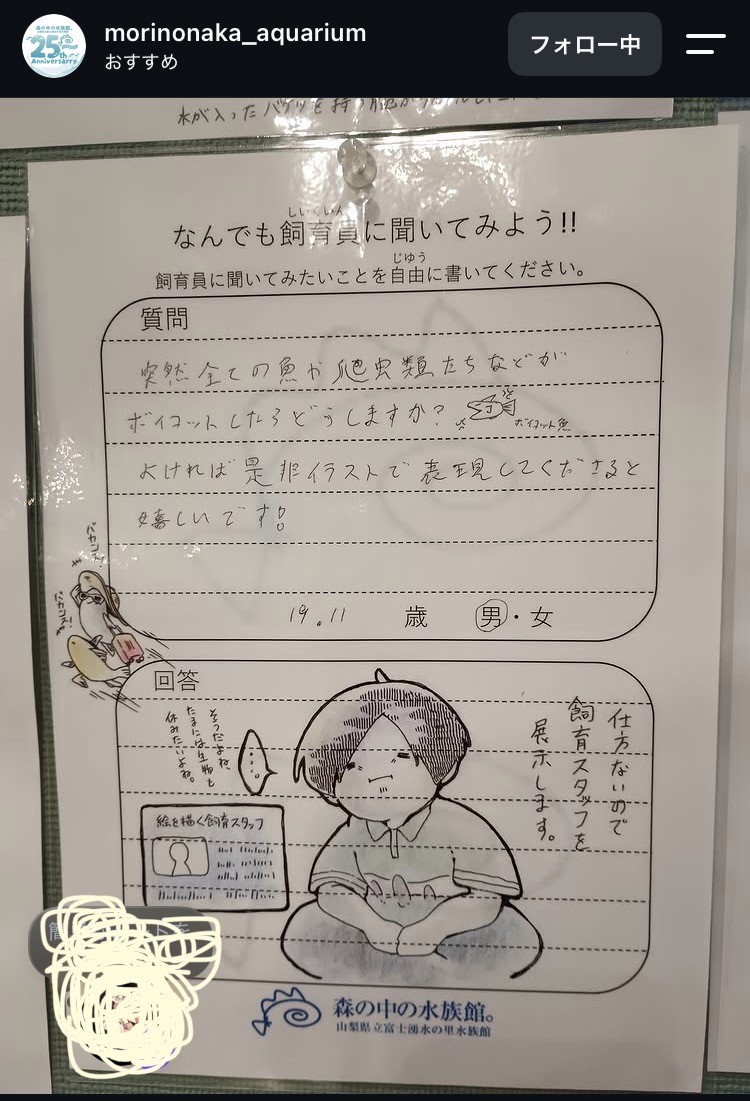 25th
Anniversary
morinonaka_aquarium
おすすめ
フォロー中
水が入ったバケツを持つ
しいくいん
なんでも飼育員に聞いてみよう!!
じゆう
飼育員に聞いてみたいことを自由に書いてください。
質問
突然全ての魚や爬虫類たちなどが
ボイコットしたらどうしますか?
ボイコット魚
よければ是非イラストで表現してくださると
嬉しいです!!
バカンス!
バカンス!
19.11 歳 男・女
回答
仕方ないので
飼育スタッフを
展示します。
そうだよね、
たまには生物も
休みたいよね。
絵を描く飼育スタッフ
森の中の水族館。
山梨県立富士湧水の里水族館